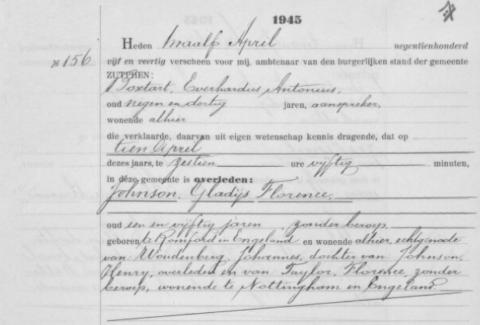 1945
Heden twaalf April negentienhonderd
№ 156. vijf en veertig verscheen voor mij, ambtenaar van den burgerlijken stand der gemeente
ZUTPHEN:
Toxtart, Everhardus Antonius,
oud negen en dertig jaren, aanspreker,
wonende alhier
die verklaarde, daarvan uit eigen wetenschap kennis dragende, dat op
tien April
dezes jaars, te zestien ure vijftig minuten,
in deze gemeente is overleden:
Johnson, Gladijs Florence,
oud een en vijftig jaren zonder beroep,
geboren te Romford in Engeland en wonende alhier, echtgenoote
van Woudenberg, Johannes, dochter van Johnson,
Henry, overleden en van Taylor, Florence, zonder
beroep, wonende te Nottingham in Engeland.